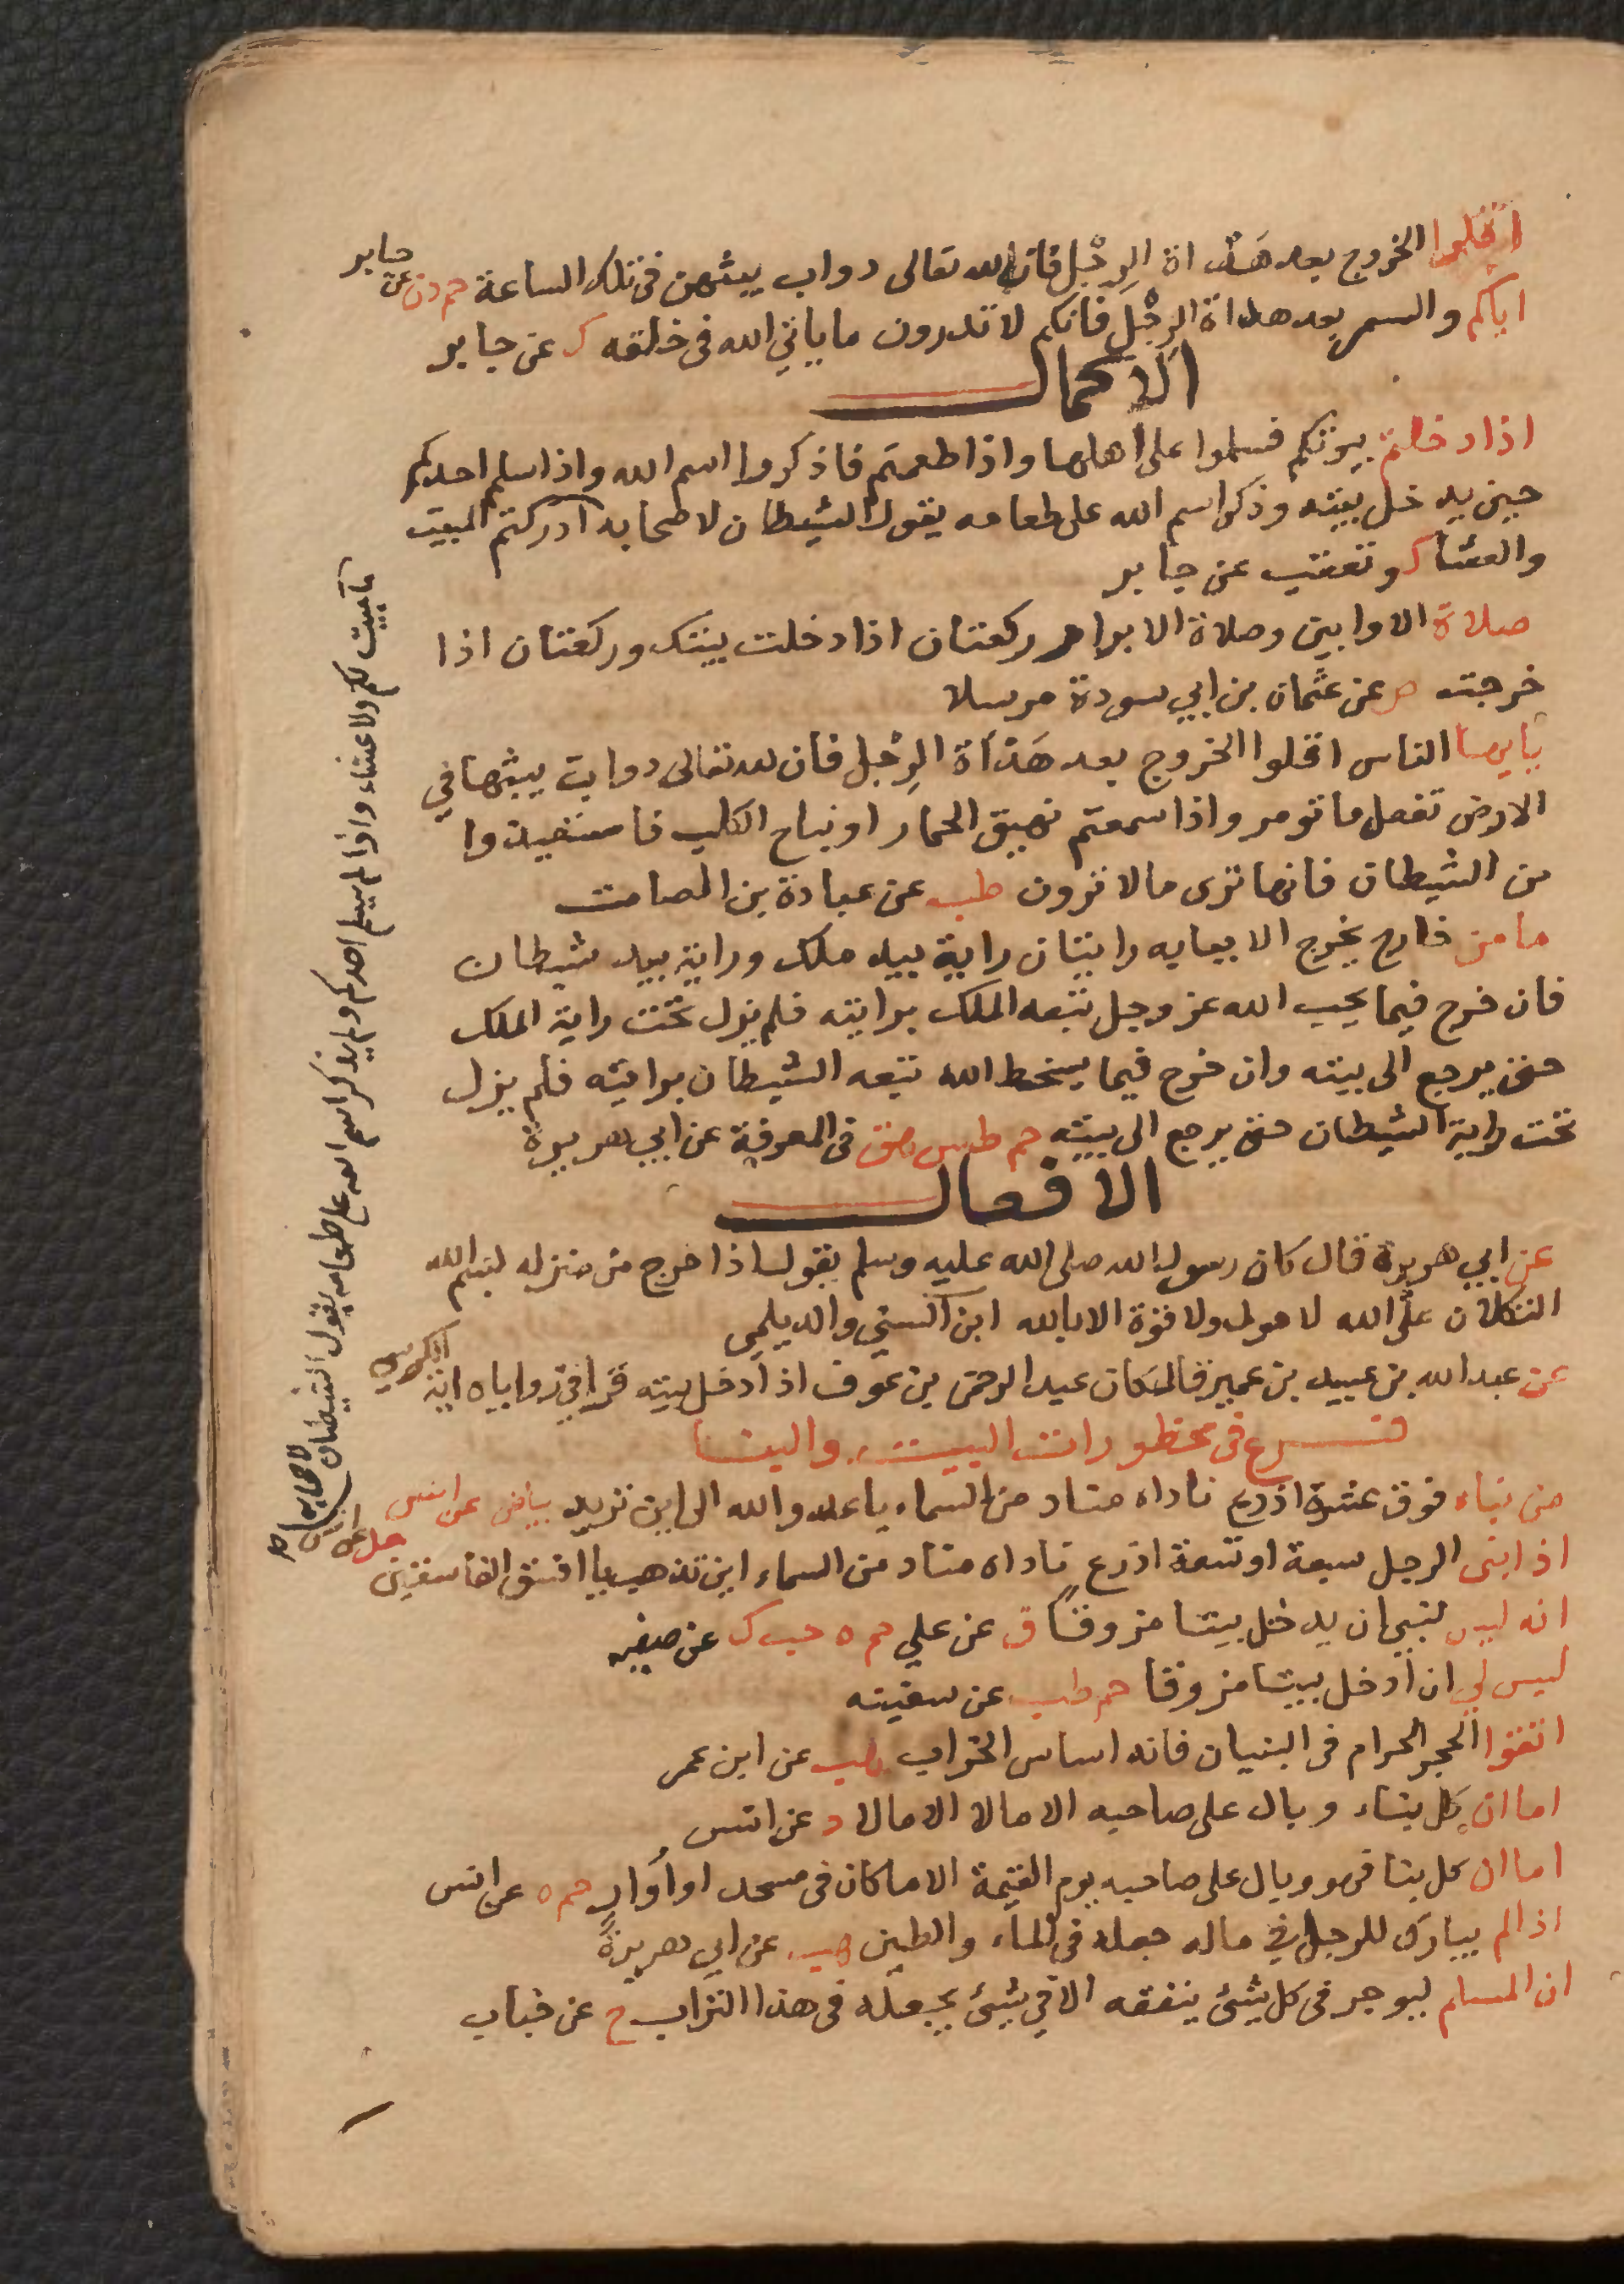 اقلوا الخروج بعد هدأة الرجل فان لله تعالى دواب يبثهن في تلك الساعة حم د ن عن جابر
اياكم والسمر بعد هدأة الرجل فانكم لا تدرون ما ياتي الله في خلقه ك عن جابر
الاكمال
اذا دخلتم بيوتكم فسلموا على اهلها واذا طعمتم فاذكروا اسم الله واذا سلم احدكم
حين يدخل بيته وذكر اسم الله على طعامه يقول الشيطان لاصحابه ادركتم المبيت
والعشا ك وتعقب عن جابر
صلاة الاوابين وصلاة الابرار ركعتان اذا دخلت بيتك وركعتان اذا
خرجت ص عن عثمان بن ابي سودة مرسلا
يايها الناس اقلوا الخروج بعد هدأة الرجل فان لله تعالى دواب يبثها في
الارض تفعل ما تومر واذا سمعتم نهيق الحمار او نباح الكلب فاستعيذوا
من الشيطان فانها ترى مالا ترون طب عن عبادة بن الصامت
ما من خارج يخرج الا ببابه رايتان راية بيد ملك وراية بيد شيطان
فان خرج فيما يحب الله عز وجل تبعه الملك برايته فلم يزل تحت راية الملك
حتى يرجع الى بيته وان خرج فيما يسخط الله تبعه الشيطان برايته فلم يزل
تحت راية الشيطان حتى يرجع الى بيته حم طس هق في المعرفة عن ابي هريرة
الافعال
عن ابي هريرة قال كان رسول الله صلى الله عليه وسلم يقول اذا خرج من منزله بسم الله
التكلان على الله لا حول ولا قوة الا بالله ابن السني والديلمي
عن عبد الله بن عبيد بن عمير قال كان عبد الرحمن بن عوف اذا دخل بيته قرا في زواياه اية الكرسي
فرع في محظورات البيت والبنا
من بناء فوق عشرة اذرع ناداه مناد من السماء يا عدو الله الى اين تريد بياض عن انس
اذا بنى الرجل سبعة او تسعة اذرع ناداه مناد من السماء اين تذهب يا افسق الفاسقين حل عن انس
انه ليس لنبي ان يدخل بيتا مزوقا ق عن علي حم ه حب ك عن سفينه
ليس لي ان ادخل بيتا مزوقا حم طب عن سفينه
اتقوا الحجر الحرام في البنيان فانه اساس الخراب هب عن ابن عمر
اما ان كل بناء وبال على صاحبه الا مالا الا مالا د عن انس
اما ان كل بنا فهو وبال على صاحبه يوم القيمة الا ما كان في مسجد او او ار حم ه عن انس
اذا لم يبارك للرجل في ماله جعله في الماء والطين هب عن ابي هريرة
ان المسلم ليوجر في كل شئ ينفقه الا في شئ يجعله في هذا التراب خ عن خباب
ما مبيت لكم ولا عشاء واذا لم يسلم احدكم ولم يذكر اسم الله على طعامه يقول الشيطان لاصحابه